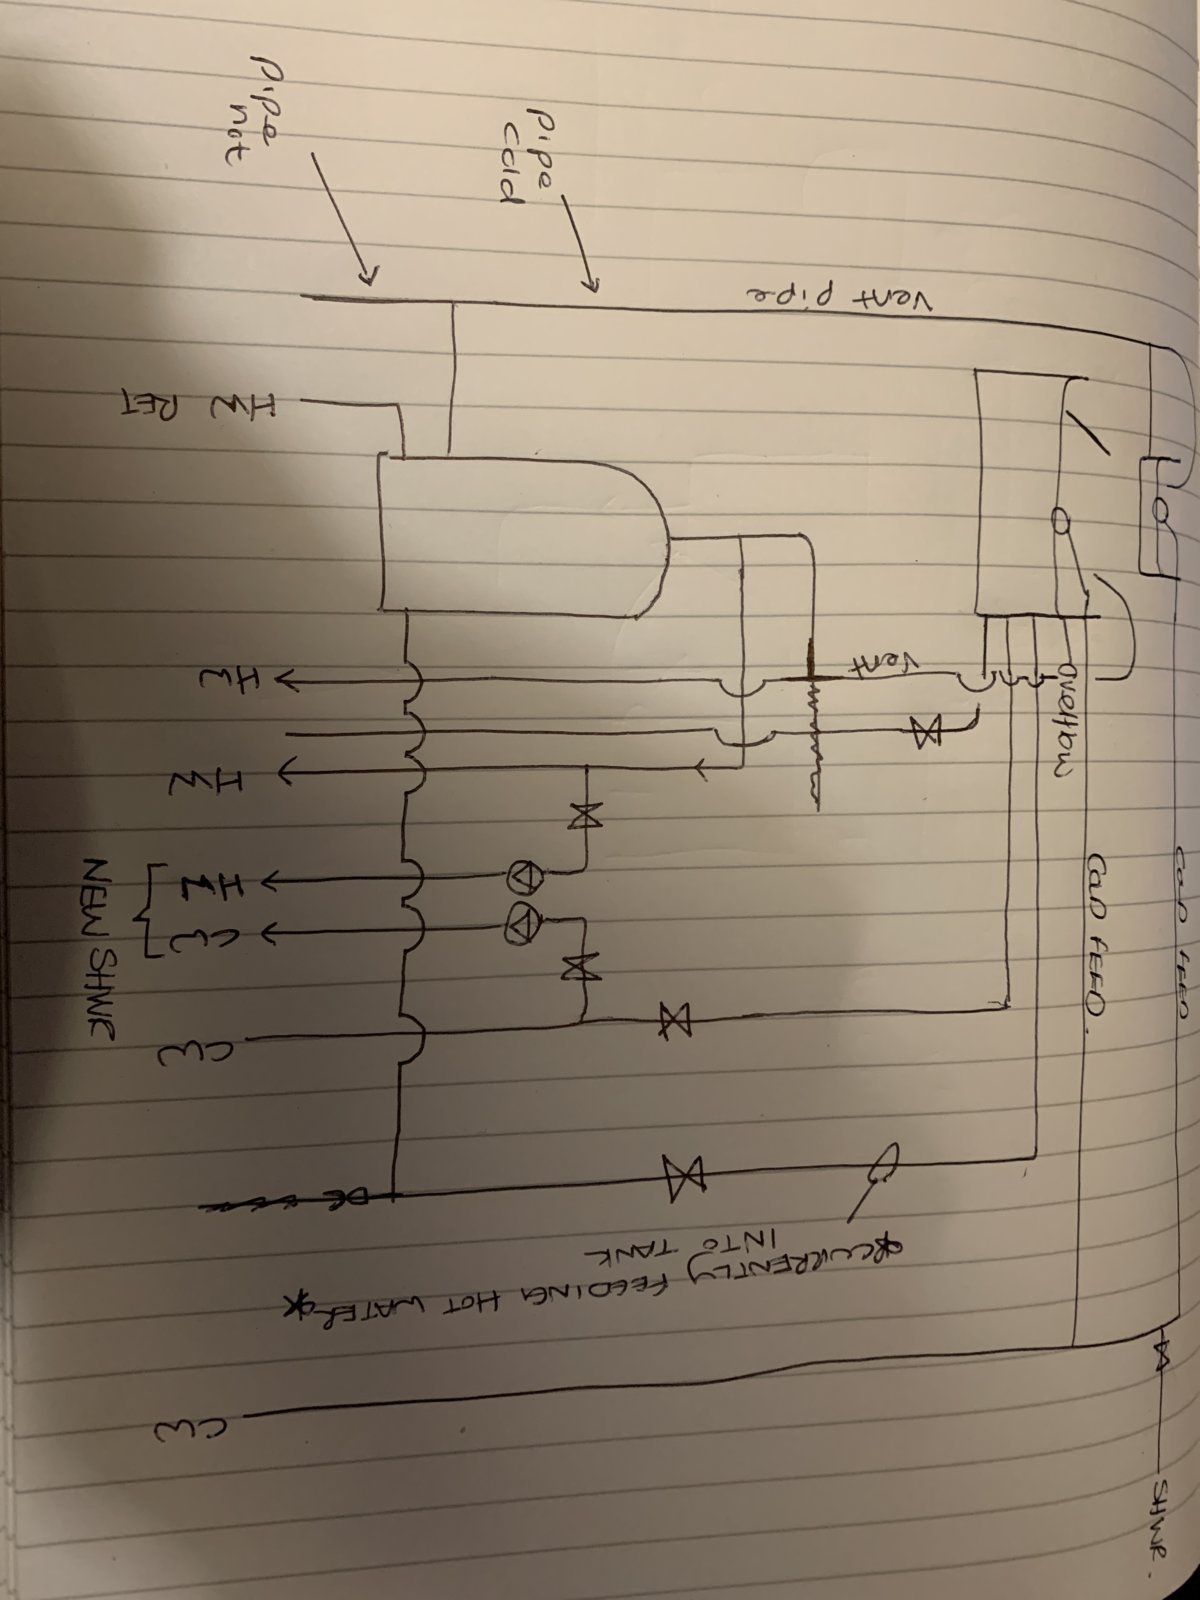 COLD FEED
SHWR.
COLD FEED.
Overflow
Vent pipe
Vent
Pipe
cold
Pipe
hot
HW RET
HW
HW
HW
CW
NEW SHWR
CW
CURRENTLY FEEDING HOT WATER
INTO TANK
CW